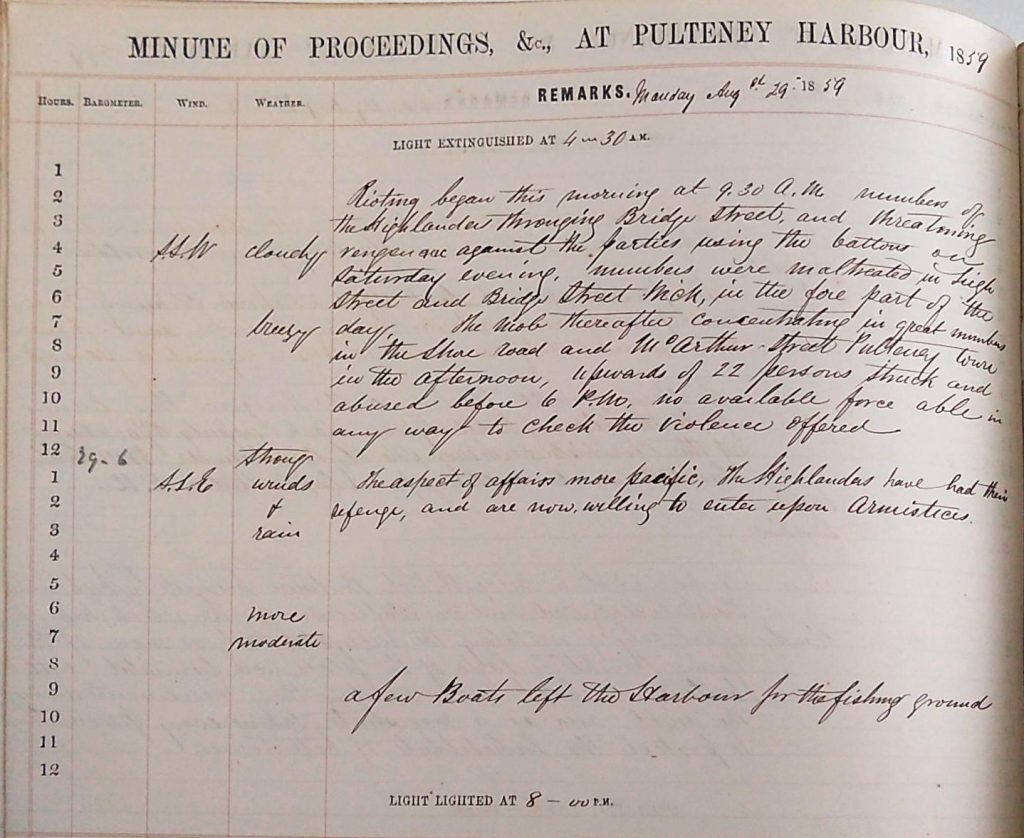 MINUTE OF PROCEEDINGS, &c., AT PULTENEY HARBOUR, 1859
HOURS. BAROMETER. WIND. WEATHER. REMARKS. Monday Augst 29 1859
LIGHT EXTINGUISHED AT 4 m 30 A.M.
1
2 Rioting began this morning at 9.30 A.M. numbers of
3 the Highlanders thronging Bridge street, and threatening
4 S.S.W cloudy vengence against the parties using the battons on
5 Saturday evening, numbers were maltreated in high
6 street and Bridge Street Wick, in the fore part of the
7 breezy day. The Mob thereafter concentrating in great numbers
8 in the Shore road and McArthur street Pulteney town
9 in the afternoon, upwards of 22 persons struck and
10 abused before 6 P.M. no available force able in
11 any way to check the violence offered
12 29-6 strong
1 S.S.E winds The aspect of affairs more pacific, The Highlanders have had their
2 & refenge, and are now, willing to enter upon Armistices.
3 rain
4
5
6 more
7 moderate
8
9 a few Boats left the Harbour for the fishing ground
10
11
12
LIGHT LIGHTED AT 8 - 00 P.M.